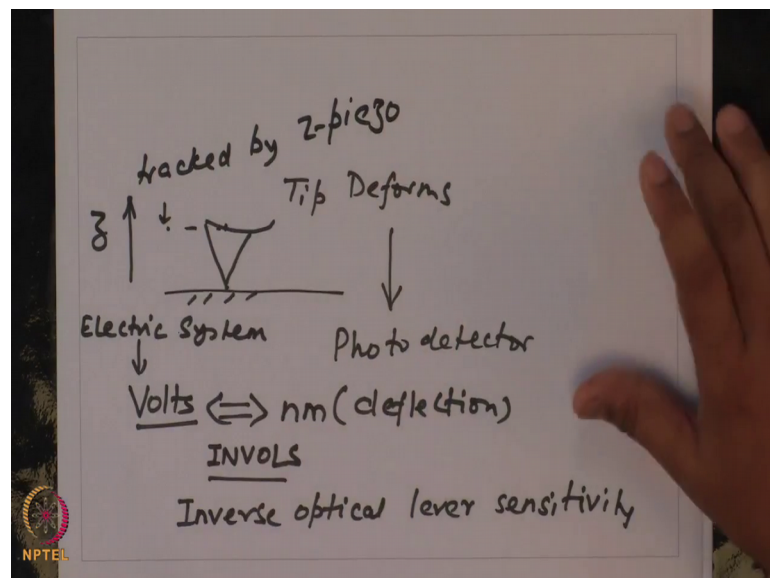 tracked by z-piezo
Tip Deforms
z
Electric System
Photodetector
Volts ⟺ nm (deflection)
INVOLS
Inverse optical lever sensitivity
NPTEL